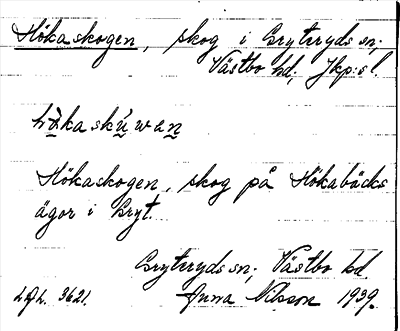 Hökaskogen, skog i Gryteryds sn;
Västbo hd; Jkp:s l.
Hökaskogen, skog på Hökabäcks
ägor i Gryt.
Gryteryds sn; Västbo hd
3621. Anna Nilsson 1939.